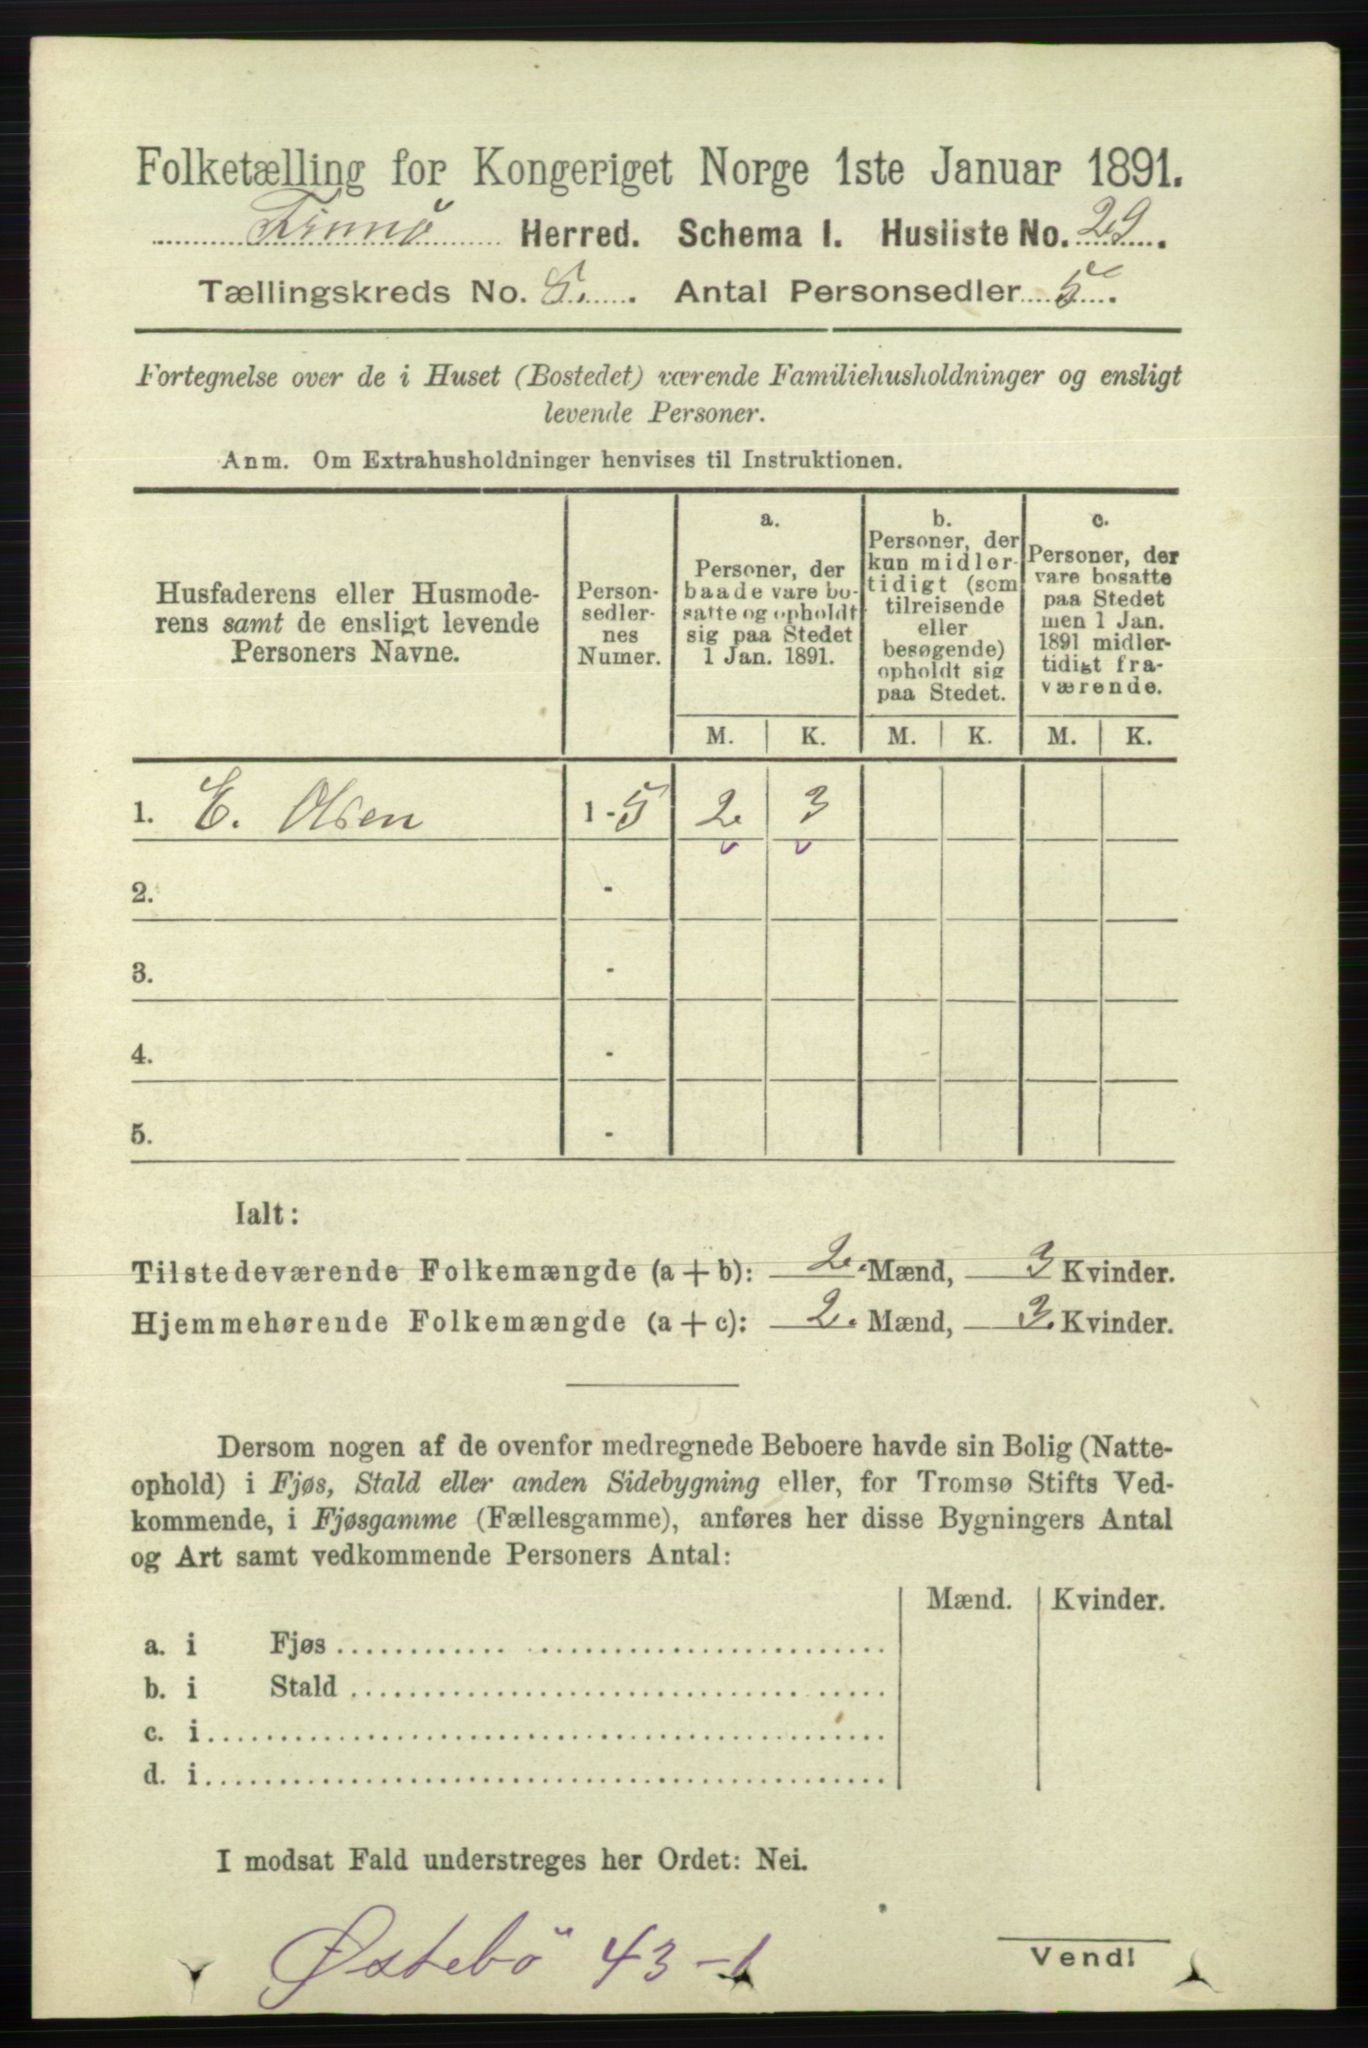 Folketælling for Kongeriget Norge 1ste Januar 1891.
Finnö Herred. Schema 1. Husliste No. 29.
Tællingskreds No. 5. Antal Personsedler 5.
Fortegnelse over de i Huset (Bostedet) værende Familiehusholdninger og ensligt
levende Personer.
Anm. Om Extrahusholdninger henvises til Instruktionen.
Husfaderens eller Husmode-
rens samt de ensligt levende
Personers Navne.
Person-
sedler-
nes
Numer.
a.
Personer, der
baade vare bo-
satte og opholdt
sig paa Stedet
1 Jan. 1891.
b.
Personer, der
kun midler-
tidigt (som
tilreisende
eller
besøgende)
opholdt sig
paa Stedet.
c.
Personer, der
vare bosatte
paa Stedet
men 1 Jan.
1891 midler-
tidigt fra-
værende.
M. K. M. K. M. K.
1. E. Olsen 1-5 2. 3
2. -
3. -
4. -
5. -
Ialt:
Tilstedeværende Folkemængde (a + b): 2. Mænd, 3 Kvinder.
Hjemmehørende Folkemængde (a + c): 2. Mænd, 3. Kvinder.
Dersom nogen af de ovenfor medregnede Beboere havde sin Bolig (Natte-
ophold) i Fjøs, Stald eller anden Sidebygning eller, for Tromsø Stifts Ved-
kommende, i Fjøsgamme (Fællesgamme), anføres her disse Bygningers Antal
og Art samt vedkommende Personers Antal:
Mænd. Kvinder.
a. i Fjøs
b. i Stald
c. i
d. i
I modsat Fald understreges her Ordet: Nei.
Østebö 43-1
Vend!